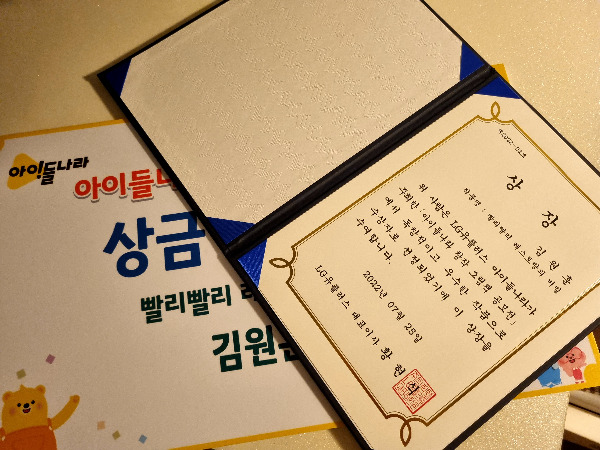 아이들나라
아이들나
상금
빨리빨리 레
김원
상 장
김 원 훈
작품명 : 빨리빨리 레스토랑의 비밀
위 사람은 LG유플러스 아이들나라가
주최한 「아이들나라 창작 그림책 공모전」
에서 독창적이고 우수한 작품으로
수상자로 선정되었기에 이 상장을
수여합니다.
2022년 07월 28일
LG유플러스 대표이사 황 현 식